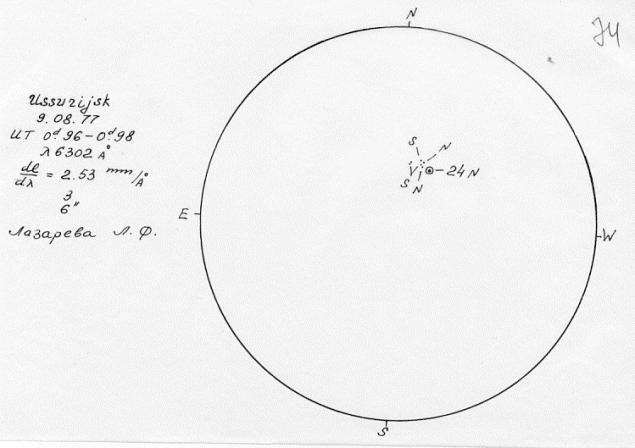 N
74
Ussurijsk
9.08.77
UT 0ᵈ.96–0ᵈ.98
λ 6302 Å
dl/dλ = 2.53 mm/Å
3
6"
Лазарева Л. Ф.
S N
V 24 N
S N
E
W
S